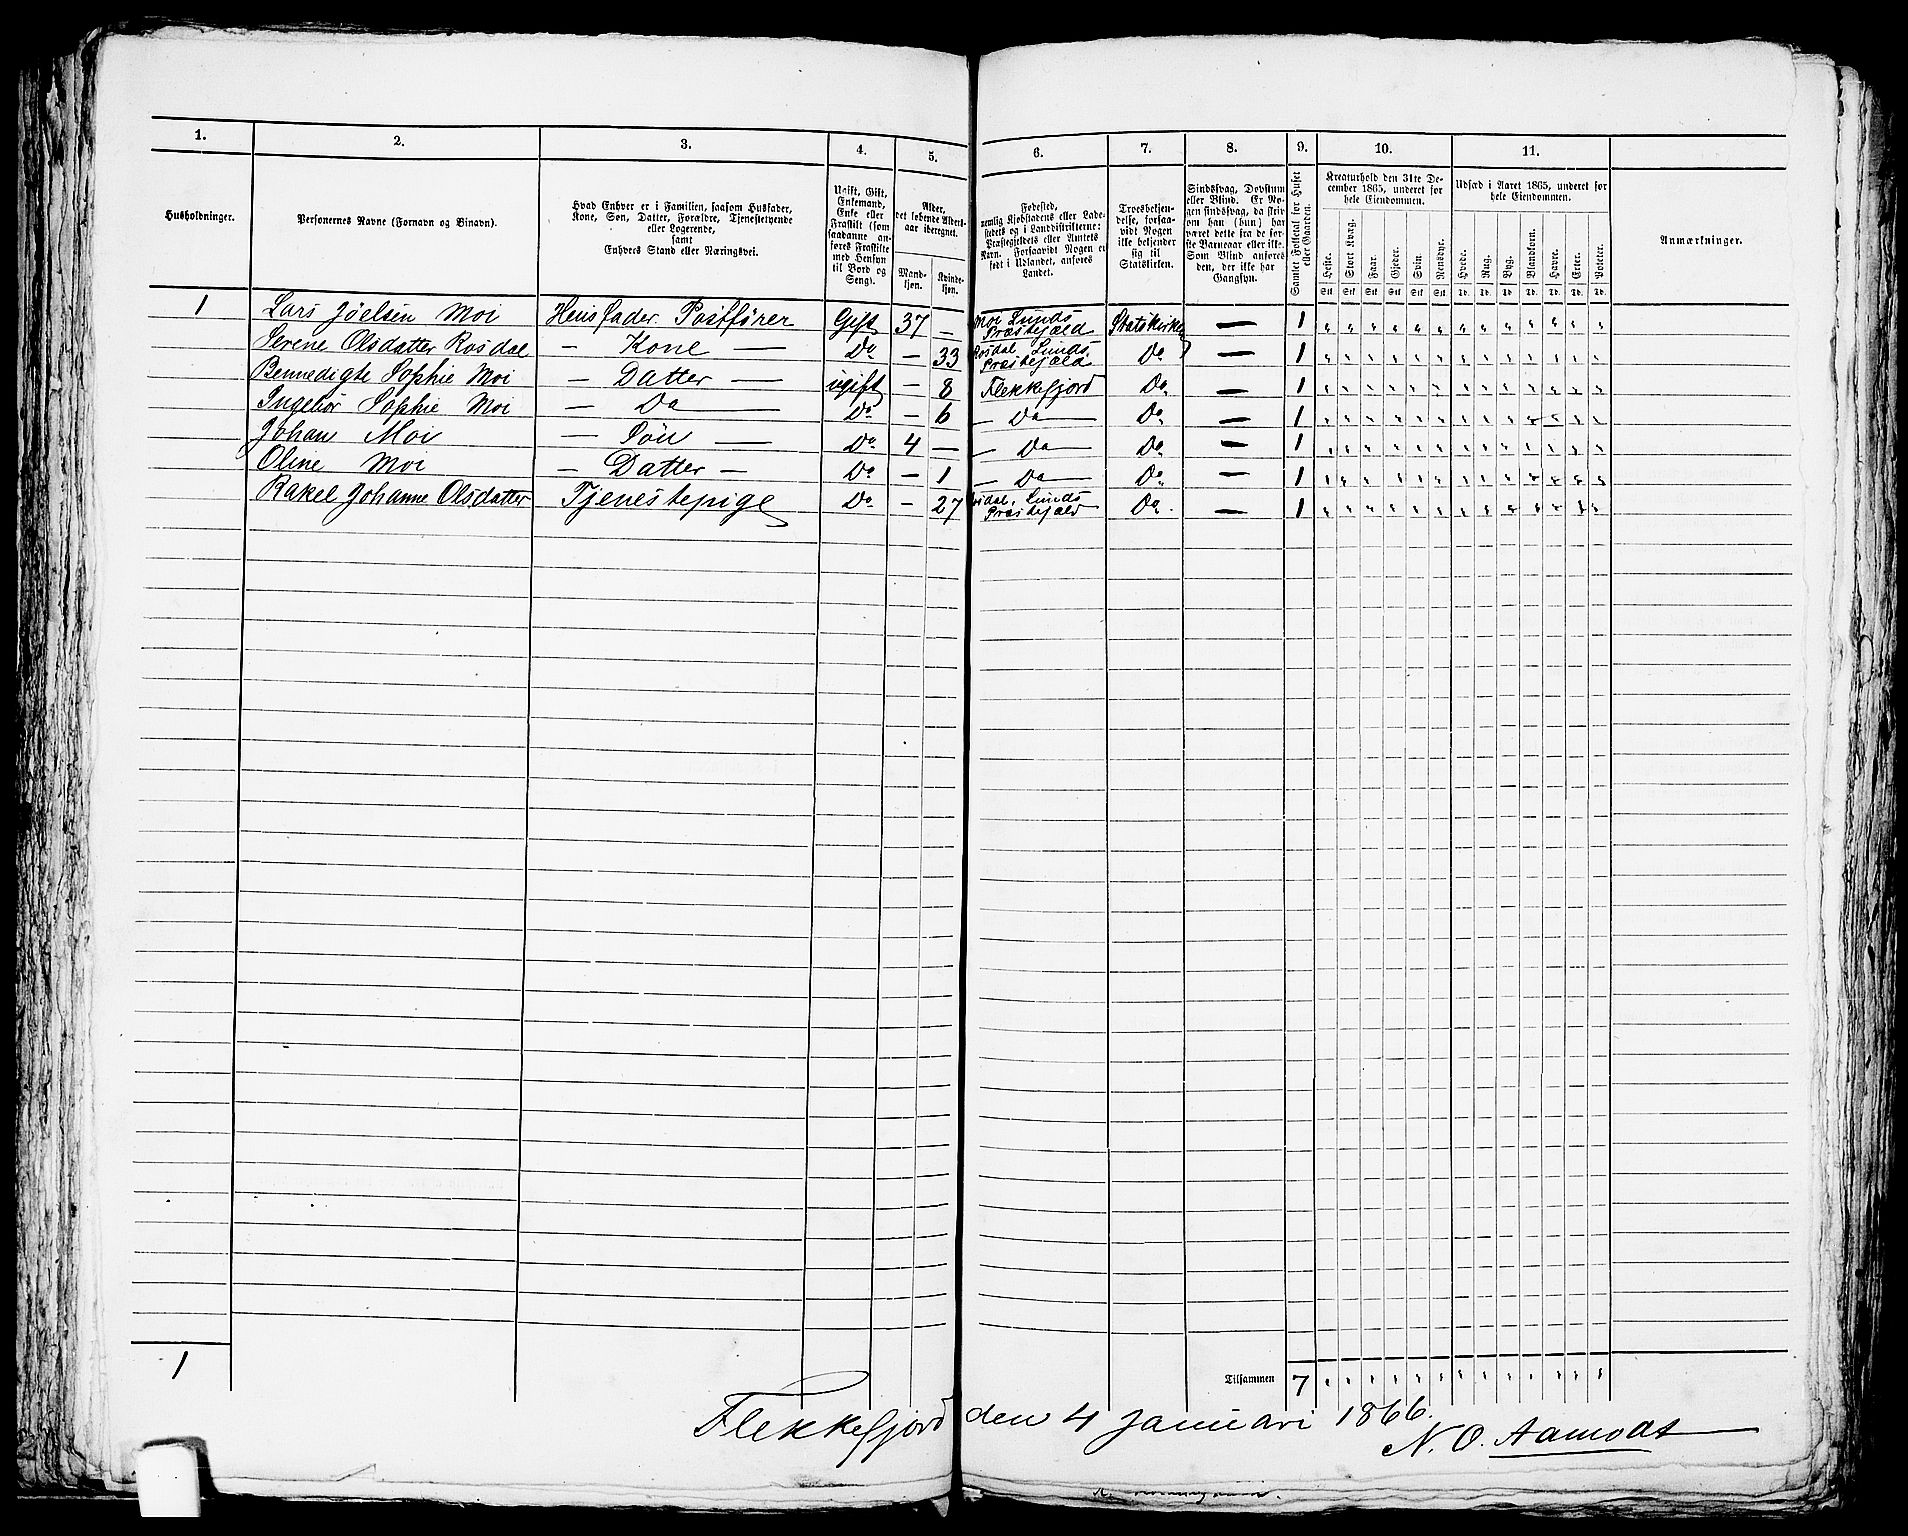 1. 2. 3. 4. 5. 6. 7. 8. 9. 10. 11.
Husholdninger.
Personernes Navne (Fornavn og Binavn).
Hvad Enhver er i Familien, saasom Husfader,
Kone, Søn, Datter, Forældre, Tjenestetyende
eller Logerende,
samt
Enhvers Stand eller Næringsvei.
Ugift, Gift,
Enkemand,
Enke eller
Fraskilt (som
saadanne an-
føres Fraskilte
med Hensyn
til Bord og
Seng).
Alder,
det løbende Alders-
aar iberegnet.
Mand-
kjøn.
Kvinde-
kjøn.
Fødested,
nemlig Kjøbstadens eller Lade-
stedets og i Landdistrikterne:
Præstegjeldets eller Amtets
Navn. Forsaavidt Nogen er
født i Udlandet, anføres
Landet.
Troesbekjen-
delse, forsaa-
vidt Nogen
ikke bekjender
sig til
Statskirken.
Sindssvag, Døvstum
eller Blind. Er No-
gen sindssvag, da skriv
om han (hun) har
været dette fra de før-
ste Barneaar eller ikke.
Som Blind anføres
den, der ikke har
Gangsyn.
Samlet Folketal for Huset
eller Gaarden.
Kreaturhold den 31te De-
cember 1865, underet for
hele Eiendommen.
Heste. Stort Kvæg. Faar. Gjeder. Svin. Rensdyr.
Stk Stk Stk Stk Stk Stk
Udsæd i Aaret 1865, underet for
hele Eiendommen.
Hvede. Rug. Byg. Blandkorn. Havre. Erter. Poteter.
Td. Td. Td. Td. Td. Td. Td.
Anmærkninger.
1 Lars Jöelsen Moi Huusfader. Postfører Gift 37 — Moi Lunds Præstejæld Statskirken — 1
Serene Olsdatter Rosdal — Kone — Do — 33 Rosdal Lunds Præstejæld Do — 1
Bennedigte Sophie Moi — Datter — ugift — 8 Flekkefjord Do — 1
Ingebór Sophie Moi — Do — Do — 6 — Do — Do — 1
Johan Moi — Sön — Do 4 — — Do — Do — 1
Oline Moi — Datter — Do — 1 — Do — Do — 1
Rakel Johanne Olsdatter Tjenestepige Do — 27 Rosdal, Lunds Præstejæld Do. — 1
1
Tilsammen 7
Flekkefjord den 4 Januari 1866.
N. O. Aamodt